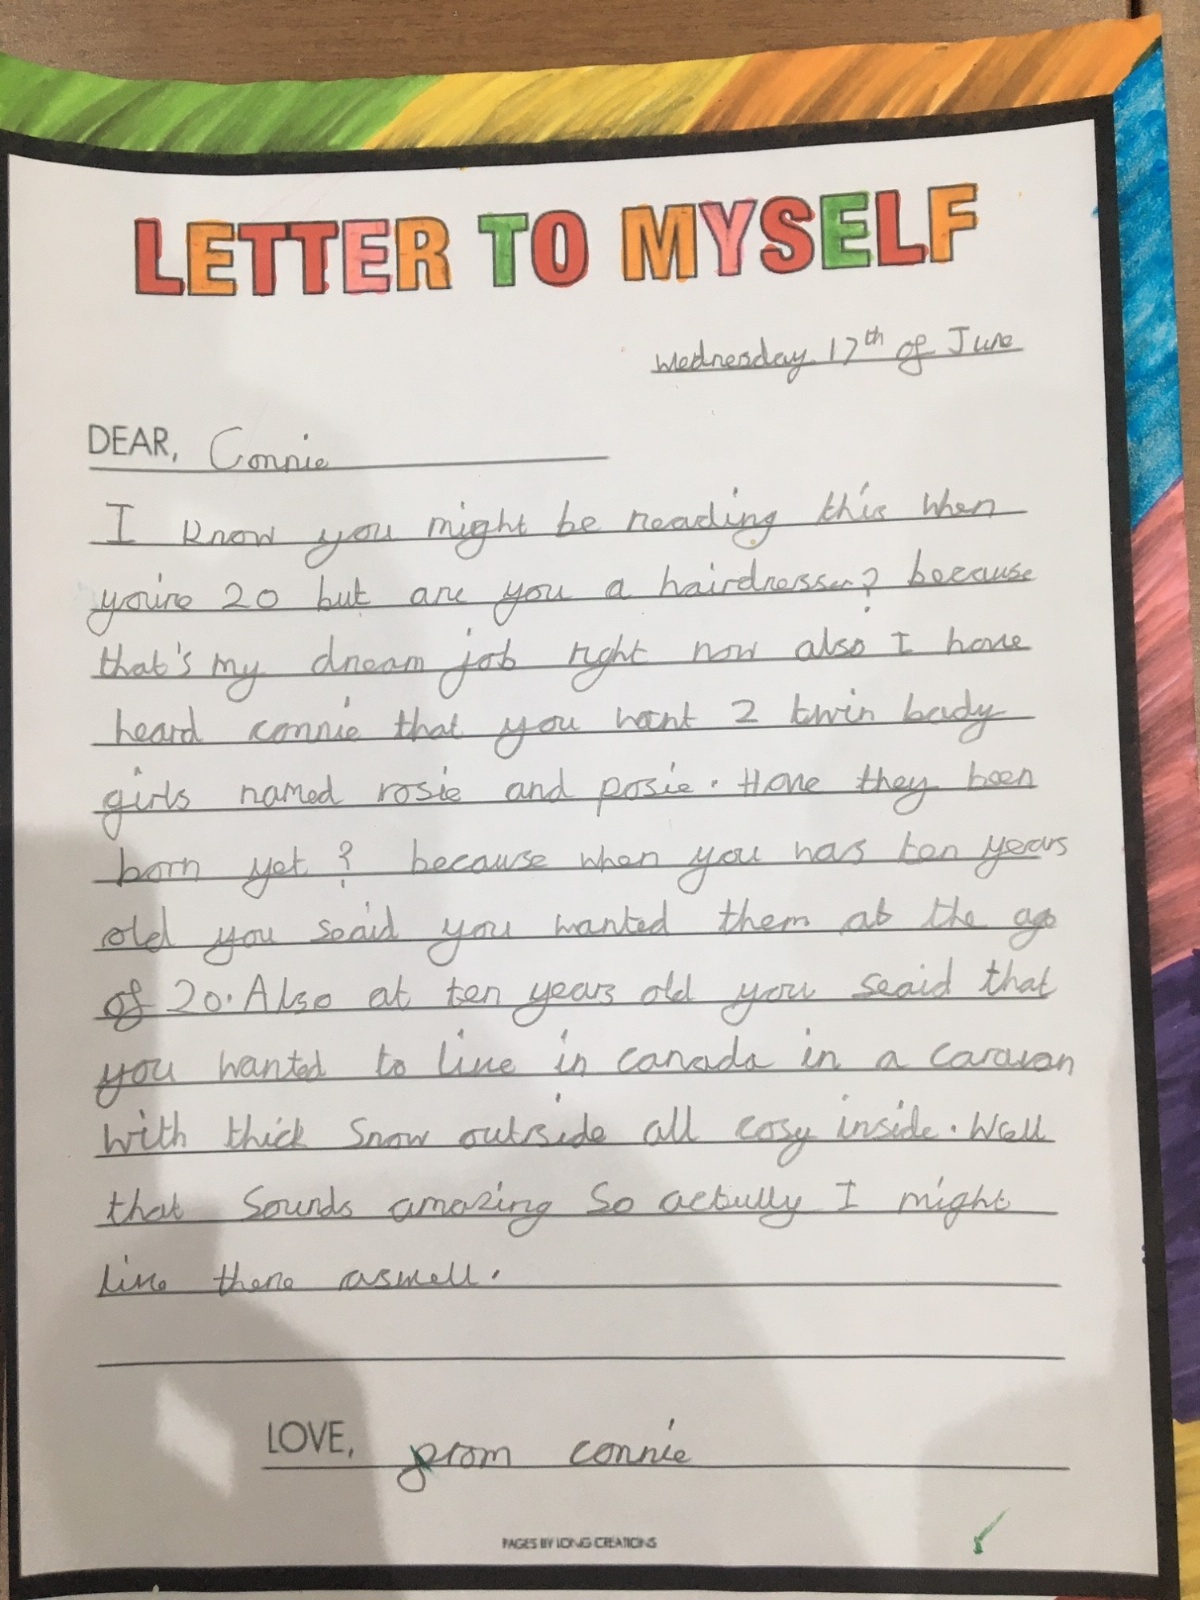 LETTER TO MYSELF
Wednesday 17th of June
DEAR, Connie
I know you might be reading this when
you're 20 but are you a hairdresser? because
that's my dream job right now also I have
heard connie that you want 2 twin bady
girls named rosie and posie. Have they been
born yet? because when you was ten years
old you seaid you wanted them at the age
of 20. Also at ten years old you seaid that
you wanted to live in canada in a caravan
with thick snow outside all cosy inside. Well
that sounds amazing so actully I might
live there aswell.
LOVE, from connie
PAGES BY LONG CREATIONS